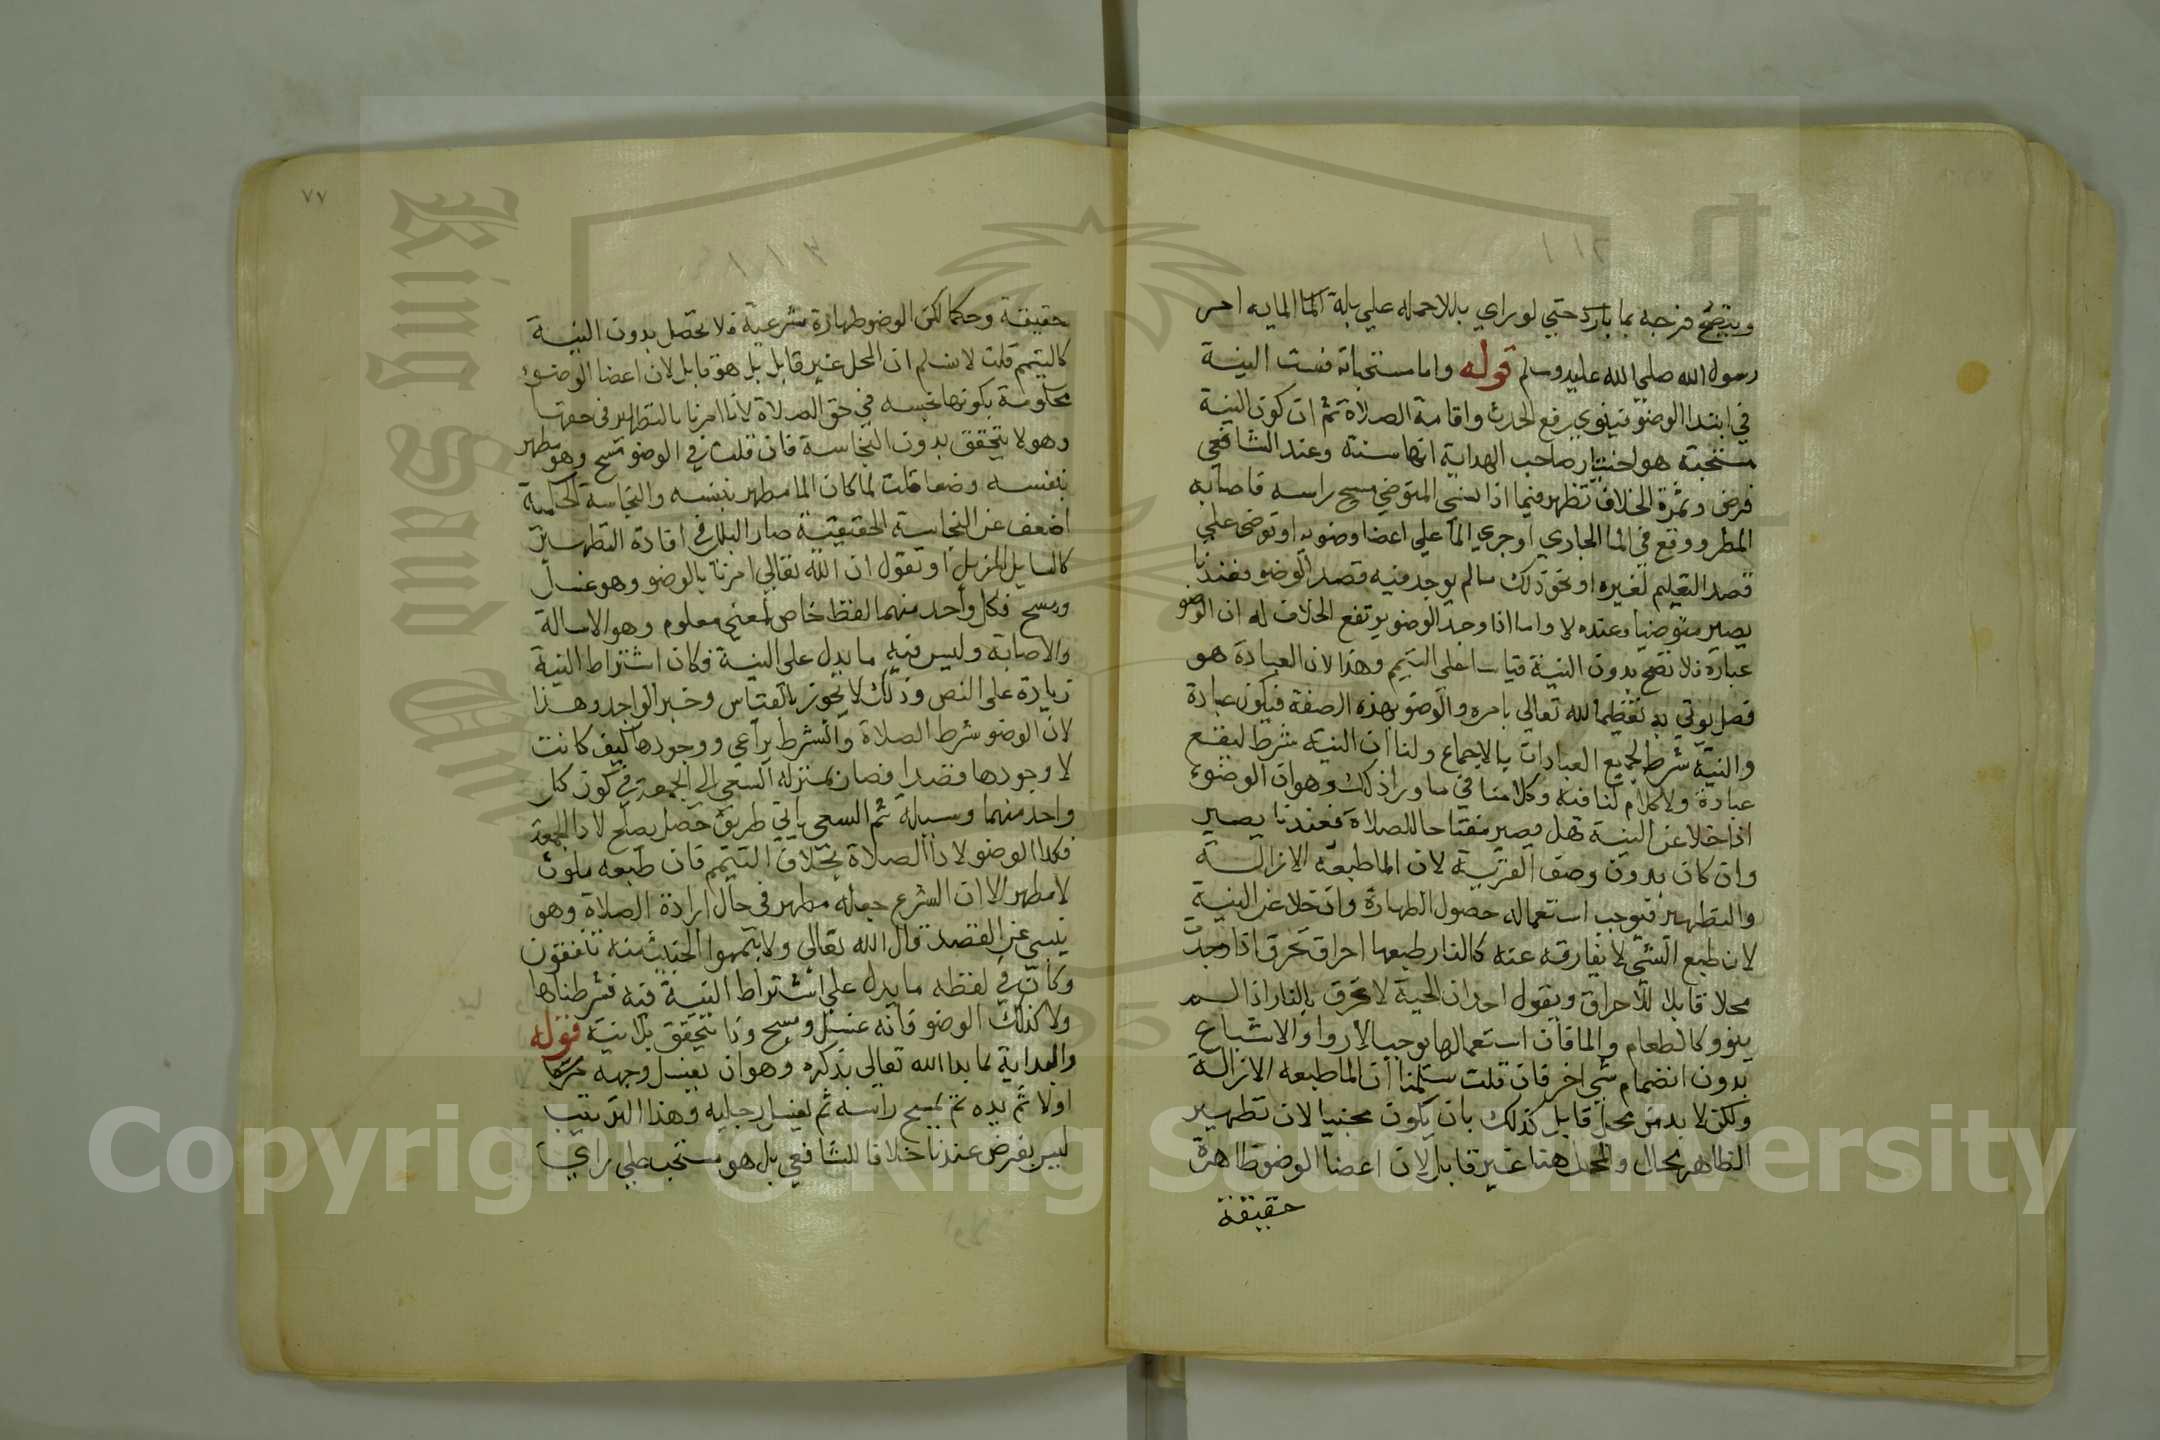 وينضح فرجه بما بارد حتي لو راي بللا حمله علي بلة الما المايه امر
رسول الله صلي الله عليه وسلم قوله واما مستحباته فست النية
في ابتدا الوضو فينوي رفع الحدث واقامة الصلاة ثم ان كون النية
مستحبة هو اختيار صاحب الهداية انها سنة وعند الشافعي
فرض وثمرة الخلاف تظهر فيما اذا نسي المتوضي مسح راسه فاصابه
المطر او وقع في الما الجاري او جري الما علي اعضا وضويه او توضي علي
قصد التعليم لغيره او نحو ذلك مالم يوجد فيه قصد الوضو فعندنا
يصير متوضيا وعنده لا واما اذا وجد الوضو يرتفع الخلاف له ان الوضو
عبادة فلا تصح بدون النية قياسا علي التيمم وهذا لان العبادة هو
فصل يوتي به تعظيما لله تعالي بامره والوضو بهذه الصفة فيكون عبادة
والنية شرط لجميع العبادات بالاجماع ولنا ان النية شرط ليقع
عبادة ولا كلام لنا فيه وكلامنا في ما ورا ذلك وهو ان الوضوء
اذا خلا عن النية هل يصير مفتاحا للصلاة فعندنا يصير
وان كان بدون وصف القربة لان الما طبعه الازالة
والتطهير فيوجب استعماله حصول الطهارة وان خلا عن النية
لان طبع الشي لا يفارقه عنه كالنار طبعها احراق تحرق اذا وجدت
محلا قابلا للاحراق ويقول احد ان الحية لا تحرق بالنار اذا لم
ينو وكالطعام والما فان استعمالها يوجب الاروا والاشباع
بدون انضمام شي اخر فان قلت سلمنا ان الما طبعه الازالة
ولكن لا بد من محل قابل كذلك بان يكون مجنبا لان تطهير
الظاهر محال والمحل هنا غير قابل لان اعضا الوضو طاهرة
حقيقة
٧٧
حقيقة وحكما لكن الوضو طهارة شرعية فلا تحصل بدون النية
كالتيمم قلت لا نسلم ان المحل غير قابل بل هو قابل لان اعضا الوضوء
محكومة بكونها نجسه في حق الصلاة لانا امرنا بالتطهير في حقها
وهو لا يتحقق بدون النجاسة فان قلت في الوضو مسح وهو مطهر
بنفسه وضعا قلت لما كان الما مطهر بنفسه والنجاسة الحكمية
اضعف عن النجاسة الحقيقية صار البلل في افادة التطهير
كالسايل المزيل او نقول ان الله تعالي امرنا بالوضو وهو غسل
ومسح فكل واحد منهما لفظ خاص لمعني معلوم وهو الاسالة
والاصابة وليس فيه ما يدل علي النية فكان اشتراط النية
زيادة علي النص وذلك لا يجوز بالقياس وخبر الواحد وهذا
لان الوضو شرط الصلاة والشرط يراعي ووجودها كيف كانت
لا وجودها قصدا فصار بمنزله السعي الي الجمعة في كون كل
واحد منهما وسيلة ثم السعي باي طريق حصل يصلح لادا الجمعة
فكذا الوضو لادا الصلاة بخلاف التيمم فان طبعه ملوث
لا مطهر الا ان الشرع جعله مطهر في حال ارادة الصلاة وهو
ينبي عن القصد قال الله تعالي ولا تيمموا الخبيث منه تنفقون
وكان في لفظه ما يدل علي اشتراط النية فيه فشرطناها
ولا كذلك الوضو فانه غسل ومسح وذا يتحقق بلا نية قوله
والبداية بما بدا الله تعالي بذكره وهو ان يغسل وجهه
اولا ثم يده ثم يمسح راسه ثم يغسل رجليه وهذا الترتيب
ليس بفرض عندنا خلافا للشافعي بل هو مستحب علي راي
Copyright © King Saud University